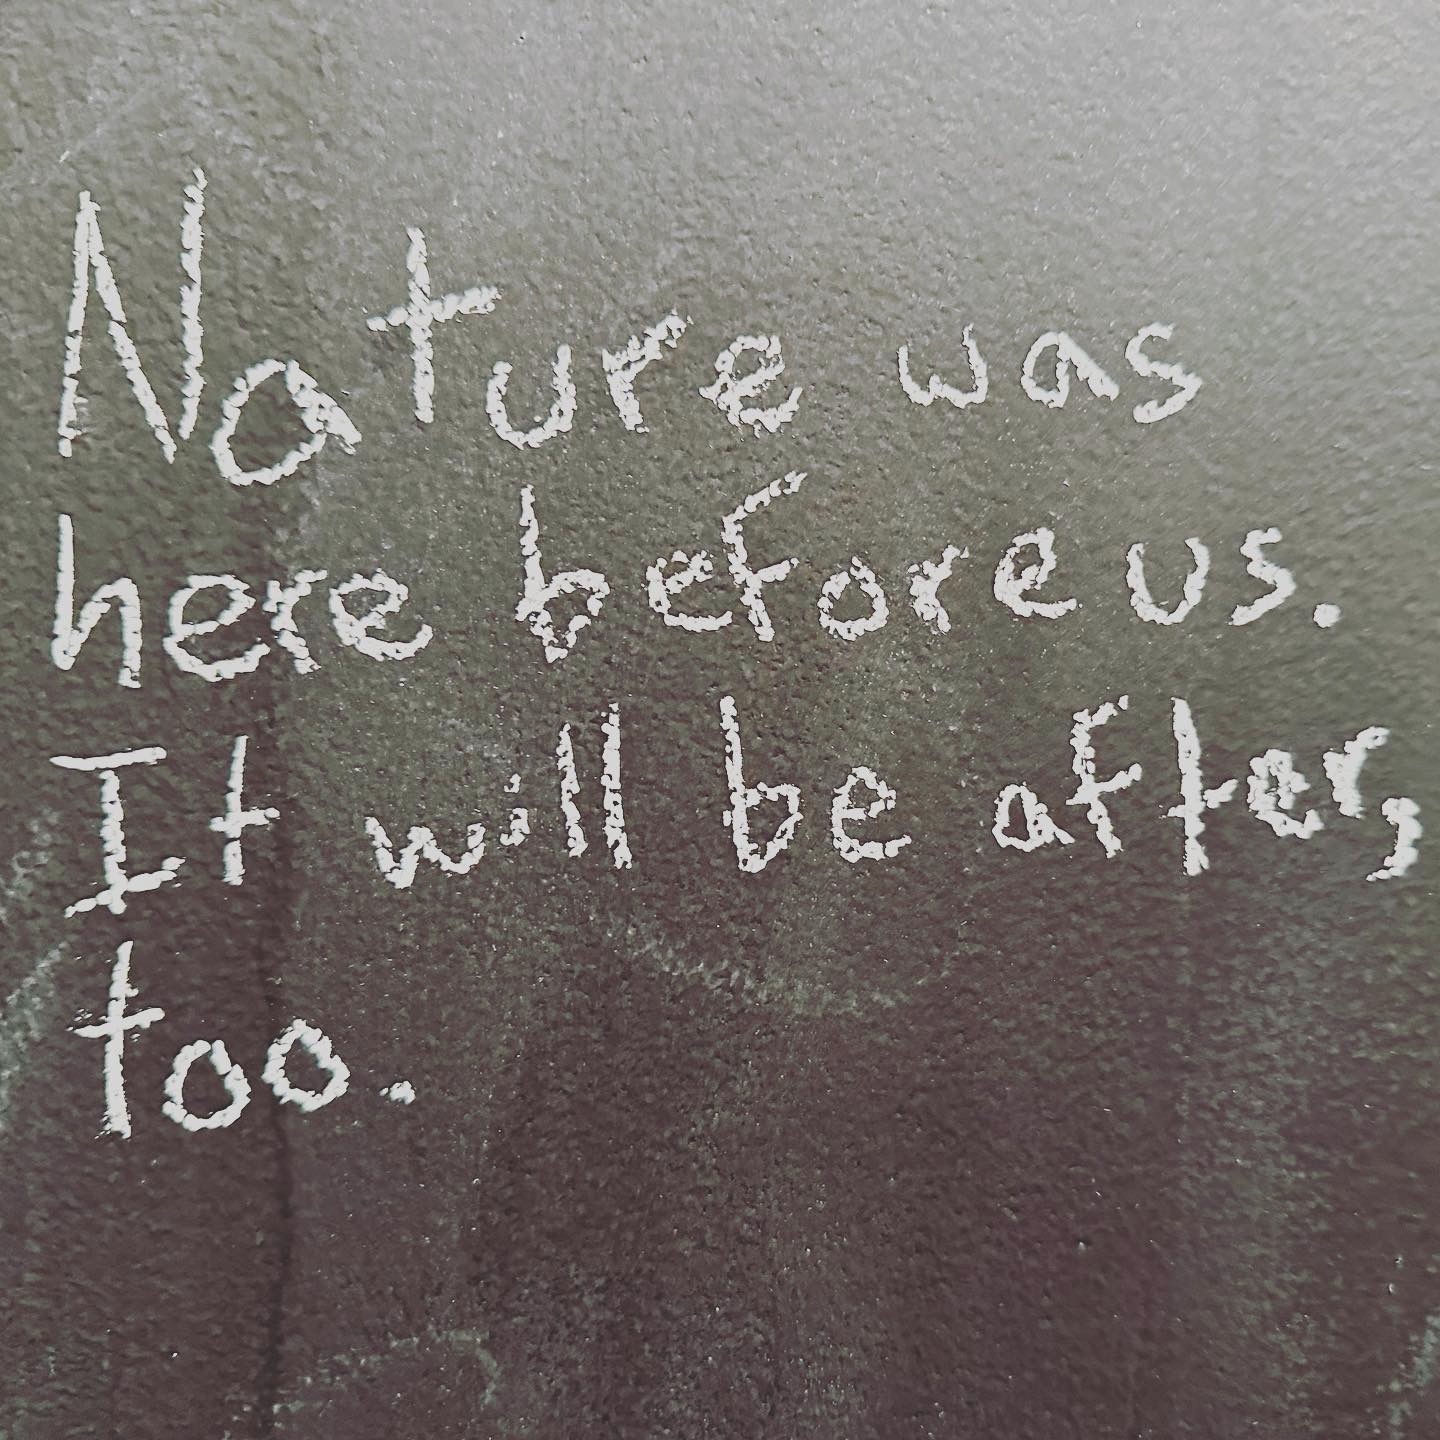 Nature was
here before us.
It will be after,
too.